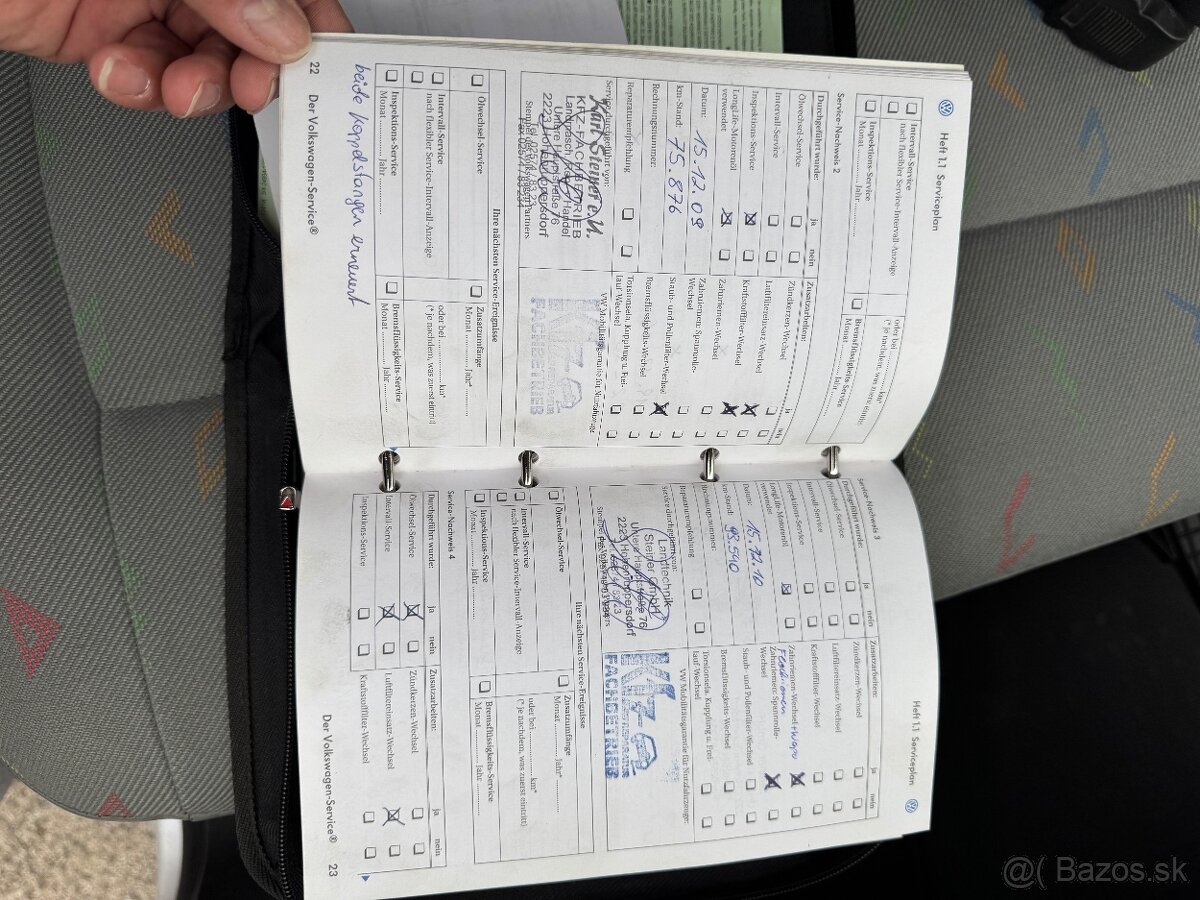 Heft 1.1 Serviceplan
Intervall-Service
nach flexibler Service-Intervall-Anzeige
Inspektions-Service
Monat ............ Jahr ............
oder bei ............ km*
(* je nachdem, was zuerst eintritt)
Bremsflüssigkeits-Service
Monat ............ Jahr ............
Service-Nachweis 2
Durchgeführt wurde: ja nein
Ölwechsel-Service
Intervall-Service
Inspektions-Service
LongLife-Motorenöl
verwendet
Datum: 15.12.09
km-Stand: 75.876
Rechnungsnummer:
Reparaturempfehlung
Service durchgeführt von:
Karl Steiner e.U.
KFZ-FACHBETRIEB
2223 Hohenruppersdorf
Stempel des Volkswagen Partners
Zusatzarbeiten: ja nein
Zündkerzen-Wechsel
Luftfiltereinsatz-Wechsel
Kraftstofffilter-Wechsel
Zahnriemen-Wechsel
Zahnriemen-Spannrolle-
Wechsel
Staub- und Pollenfilter-Wechsel
Bremsflüssigkeits-Wechsel
Torsionsela. Kupplung u. Frei-
lauf-Wechsel
VW Mobilitätsgarantie für Nutzfahrzeuge:
KFZ
REPARATUR
FACHBETRIEB
Ihre nächsten Service-Ereignisse
Ölwechsel-Service
Intervall-Service
nach flexibler Service-Intervall-Anzeige
Inspektions-Service
Monat ............ Jahr ............
Zusatzumfänge
Monat ............ Jahr*
oder bei ............ km*
(* je nachdem, was zuerst eintritt)
Bremsflüssigkeits-Service
Monat ............ Jahr ............
beide Koppelstangen erneuert
22 Der Volkswagen-Service®
Heft 1.1 Serviceplan
Service-Nachweis 3
Durchgeführt wurde: ja nein
Ölwechsel-Service
Intervall-Service
Inspektions-Service
LongLife-Motorenöl
verwendet
Datum: 15.12.10
km-Stand: 93.540
Rechnungsnummer:
Reparaturempfehlung
Service durchgeführt von:
Landtechnik
Steiner GmbH
Untere Hauptstraße 76
2223 Hohenruppersdorf
Zusatzarbeiten: ja nein
Zündkerzen-Wechsel
Luftfiltereinsatz-Wechsel
Kraftstofffilter-Wechsel
Zahnriemen-Wechsel + Wapu
Zahnriemen-Spannrolle-
Wechsel
Staub- und Pollenfilter-Wechsel
Bremsflüssigkeits-Wechsel
Torsionsela. Kupplung u. Frei-
lauf-Wechsel
VW Mobilitätsgarantie für Nutzfahrzeuge:
KFZ
REPARATUR
FACHBETRIEB
Ihre nächsten Service-Ereignisse
Ölwechsel-Service
Intervall-Service
nach flexibler Service-Intervall-Anzeige
Inspektions-Service
Monat ............ Jahr ............
Zusatzumfänge
Monat ............ Jahr*
oder bei ............ km*
(* je nachdem, was zuerst eintritt)
Bremsflüssigkeits-Service
Monat ............ Jahr ............
Service-Nachweis 4
Durchgeführt wurde: ja nein
Ölwechsel-Service
Intervall-Service
Inspektions-Service
Zusatzarbeiten: ja nein
Zündkerzen-Wechsel
Luftfiltereinsatz-Wechsel
Kraftstofffilter-Wechsel
Der Volkswagen-Service® 23
@( Bazos.sk